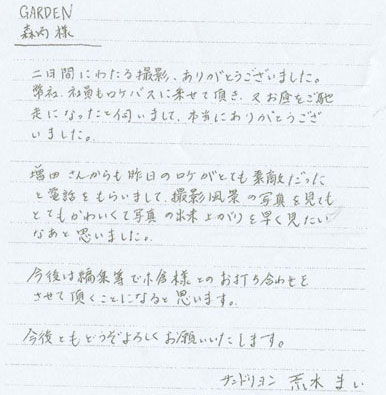 GARDEN
森内様
二日間にわたる撮影、ありがとうございました。
弊社、社員もロケバスに乗せて頂き、又お昼をご馳
走になったと伺いまして、本当にありがとうござ
いました。
増田さんからも昨日のロケがとても素敵だった
と電話をもらいまして、撮影風景の写真を見ても
とてもかわいくて写真の出来上がりを早く見たい
なあと思いました。
今後は編集等で小倉様とのお打ち合わせを
させて頂くことになると思います。
今後ともどうぞよろしくお願いいたします。
サンドリヨン 荒木まい